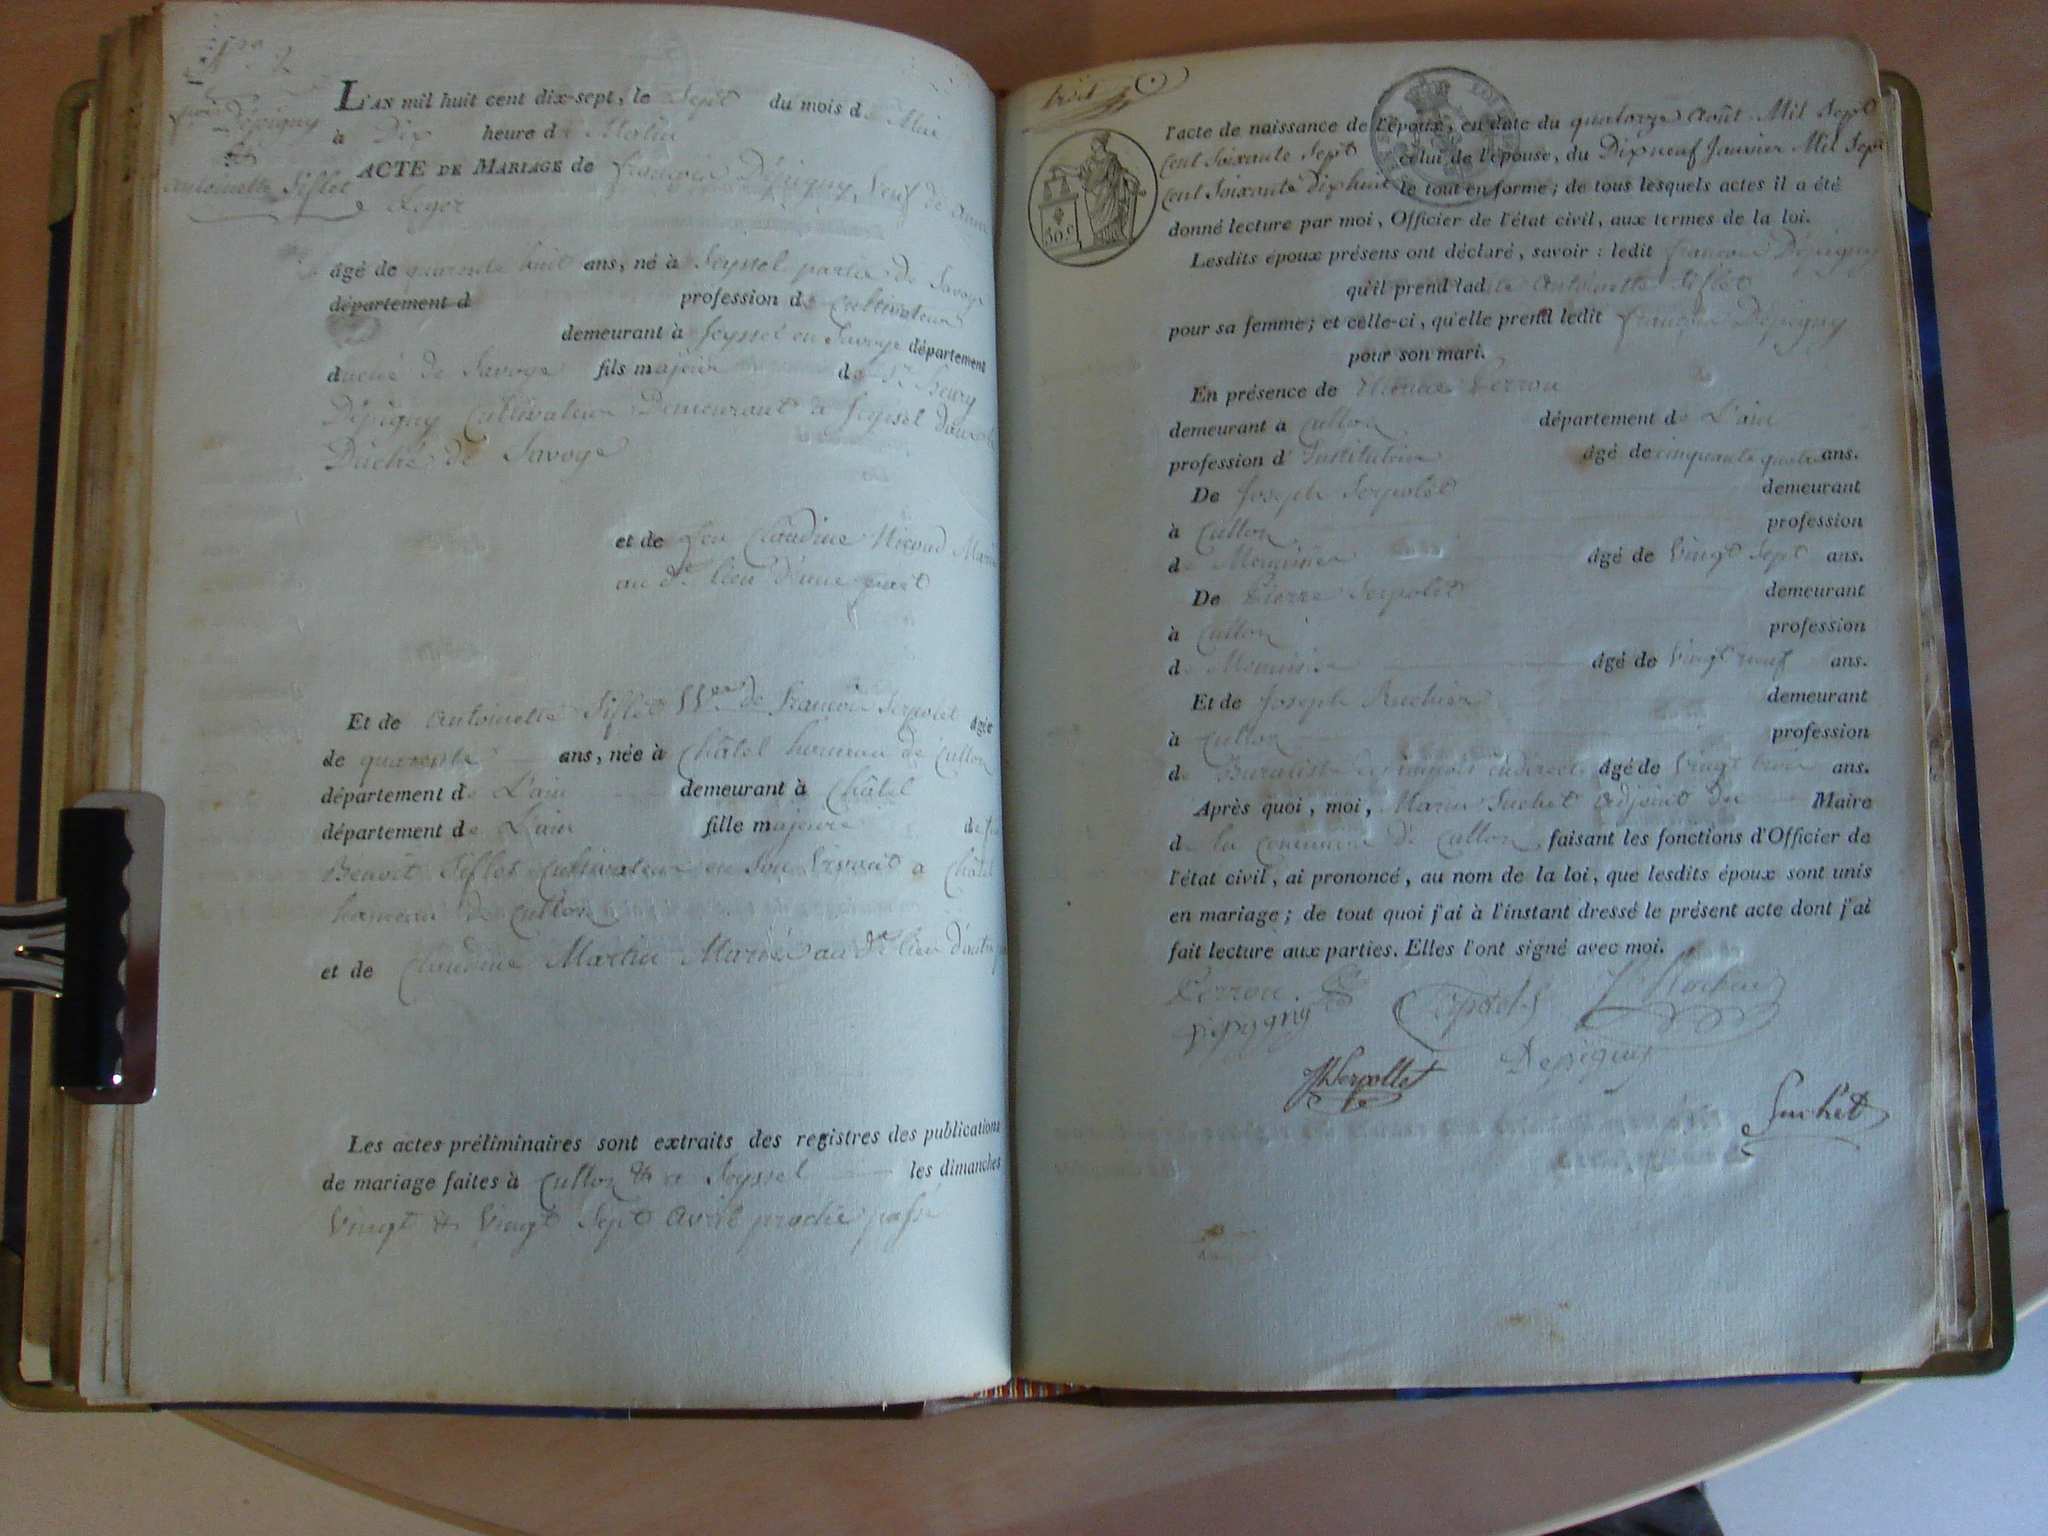 N.° 2
Dépigny
&
Antoinette Siflet
L'AN mil huit cent dix-sept, le Sept du mois de Mai
à Dix heure de Matin
ACTE DE MARIAGE de françois Dépigny, Veuf de
Leger
âgé de quarente huit ans, né à Seyssel partie de Savoye
département d profession de Cultivateur
demeurant à Seyssel en Savoye département
duché de Savoye fils majeur de
Dépigny Cultivateur Demeurant a Seyssel
Duché de Savoye
et de feu Claudine Nicoud
au d.t lieu d'une part
Et de Antoinette Siflet V.ve de François Serpolet âgée
de quarente ans, née à Châtel hameau de Cullon
département de L'ain demeurant à Châtel
département de L'ain fille majeure de
Benoit Siflet Cultivateur en Son Vivant a Châtel
hameau de Cullon
et de Claudine Martin Mariés au d.t lieu d'autre
Les actes préliminaires sont extraits des registres des publications
de mariage faites à Cullon & a Seyssel les dimanches
Vingt & Vingt Sept avril proche passé
l'acte de naissance de l'époux, en date du quatorze Août Mil Sept
Cent Soixante Sept celui de l'épouse, du Dix neuf Janvier Mil Sept
Cent Soixante Dix huit le tout en forme; de tous lesquels actes il a été
donné lecture par moi, Officier de l'état civil, aux termes de la loi.
Lesdits époux présens ont déclaré, savoir : ledit françois Dépigny
qu'il prend lad.te Antoinette Siflet
pour sa femme; et celle-ci, qu'elle prend ledit françois Dépigny
pour son mari.
En présence de Perrou
demeurant à Cullon département de L'ain
profession d' âgé de cinquante quatre ans.
De Joseph Serpolet demeurant
à Cullon profession
de Menuisier âgé de Vingt Sept ans.
De Pierre Serpolet demeurant
à Cullon profession
de Menuisier âgé de Vingt neuf ans.
Et de Joseph demeurant
à Cullon profession
de Buraliste âgé de Vingt trois ans.
Après quoi, moi, Suchet Adjoint du Maire
de la Commune de Cullon, faisant les fonctions d'Officier de
l'état civil, ai prononcé, au nom de la loi, que lesdits époux sont unis
en mariage; de tout quoi j'ai à l'instant dressé le présent acte dont j'ai
fait lecture aux parties. Elles l'ont signé avec moi.
Perrou
Depigny
Serpollet
Suchet
50.c